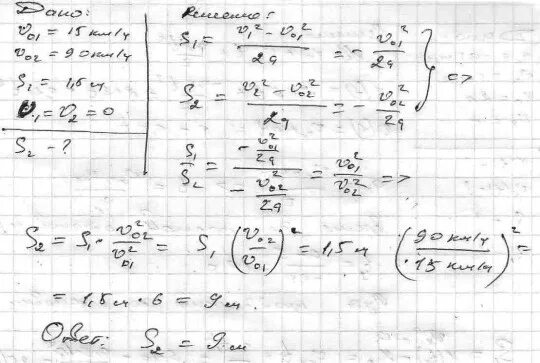 Дано:
v₀₁ = 15 км/ч
v₀₂ = 90 км/ч
S₁ = 1,5 м
v₁ = v₂ = 0
S₂ - ?
Решение:
S₁ = (v₁² - v₀₁²)/2a = - v₀₁²/2a
S₂ = (v₂² - v₀₂²)/2a = - v₀₂²/2a } =>
S₁/S₂ = (- v₀₁²/2a)/(- v₀₂²/2a) = v₀₁²/v₀₂² =>
S₂ = S₁ · v₀₂²/v₀₁² = S₁ (v₀₂/v₀₁)² = 1,5 м (90 км/ч / 15 км/ч)² =
= 1,5 м · 6 = 9 м.
Ответ: S₂ = 9 м